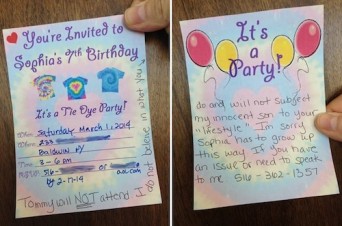 You're Invited to
Sophia's 7th Birthday
It's a Tie Dye Party!
Saturday March 1, 2014
233
Baldwin NY
3-6 pm
516-
or
aol.com
by 2-17-14
Tommy will NOT attend. I do not believe in what you
It's
a
Party!
do and will not subject
my innocent son to your
"lifestyle" I'm sorry
Sophia has to grow up
this way. If you have
an issue or need to speak
to me 516-362-1357